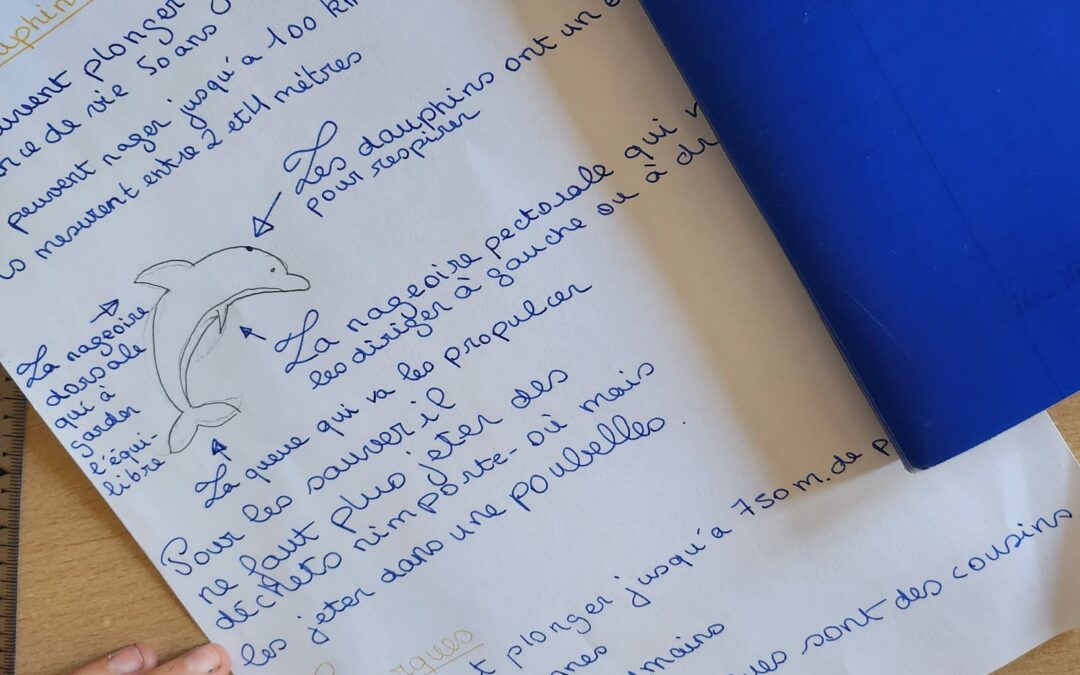 plonger
de vie 50 ans
peuvent nager jusqu'à 100
mesurent entre 2 et 4 mètres
Les dauphins ont un
pour respirer
La nageoire pectorale qui
les diriger à gauche ou à
La nageoire
dorsale
qui à
garder
l'équi-
libre
La queue qui va les propulcer
Pour les sauver il
ne faut plus jeter des
déchets nimporte-où mais
les jeter dans une poubelles.
plonger jusqu'à 750 m. de
sont des cousins